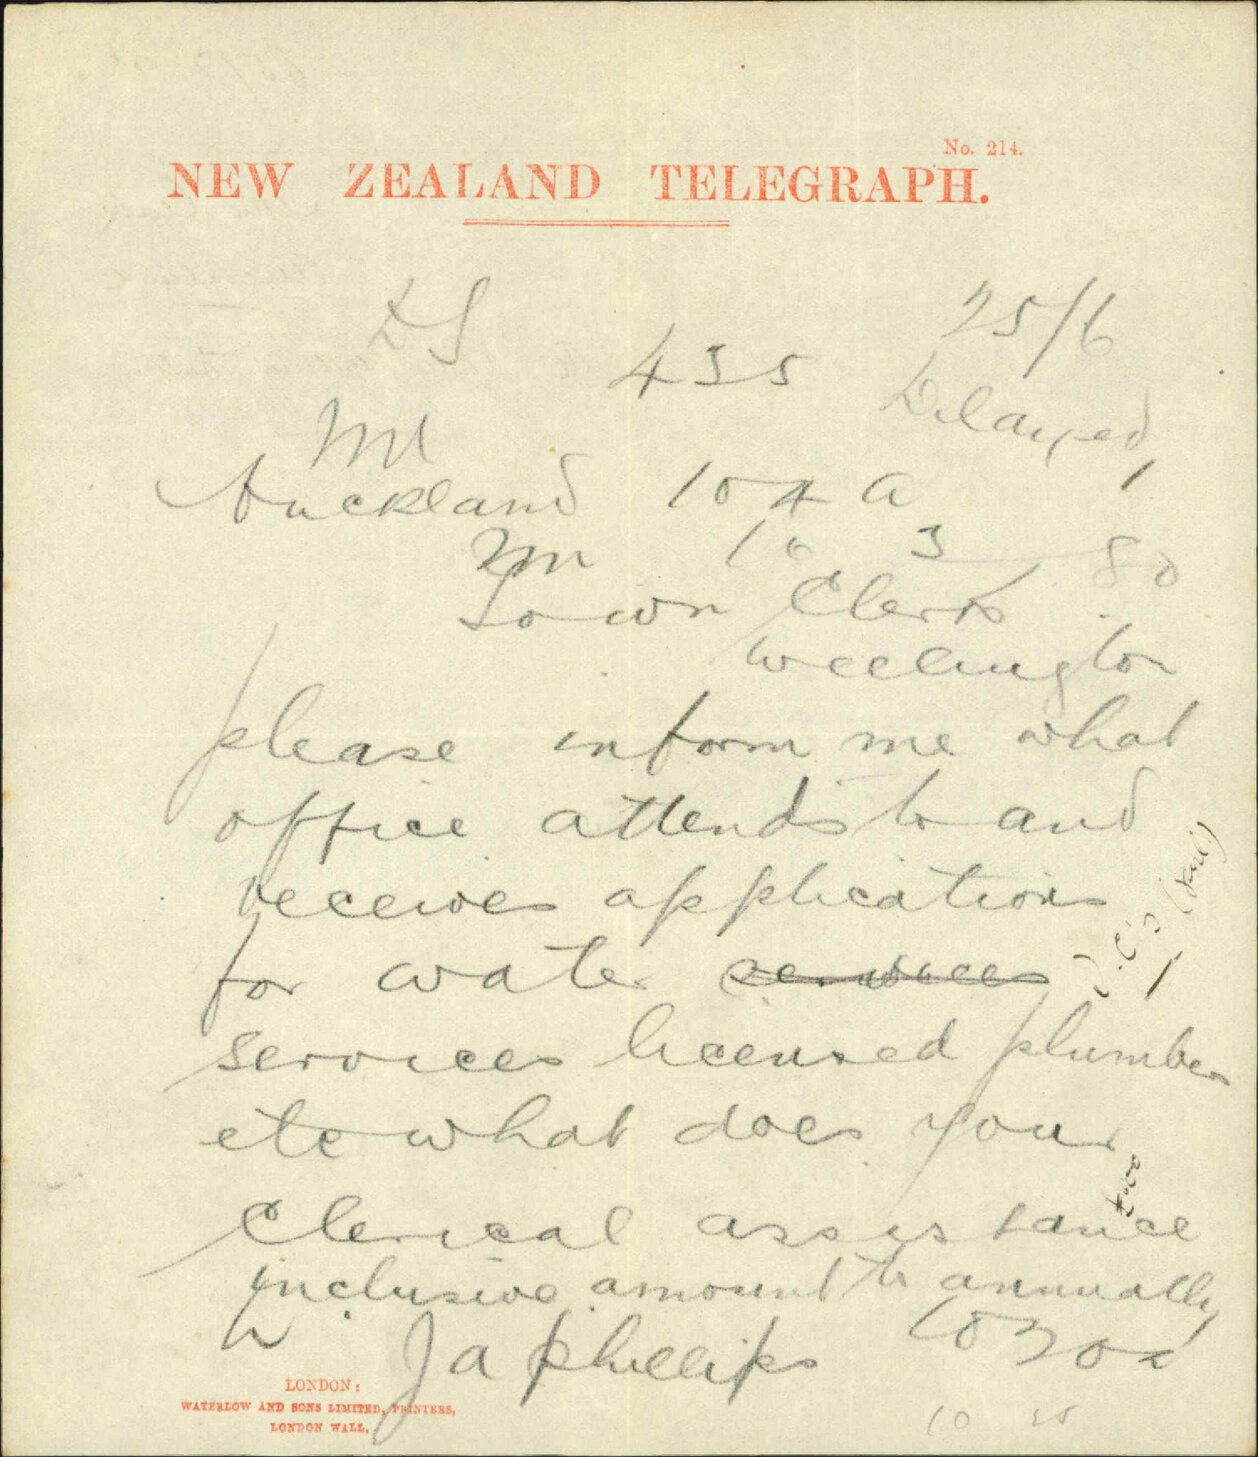 No. 214.
NEW ZEALAND TELEGRAPH.
DS
25/6
435
Delayed
Auckland 10 4 a
3 80
Town Clerk
Wellington
please inform me what
office attends to and
receives applications
for water services
services licensed plumber
etc what does your
Clerical assistance
inclusive amount to annually
J a Phillips
10 30 a
10 25
LONDON:
WATERLOW AND SONS LIMITED, PRINTERS,
LONDON WALL.